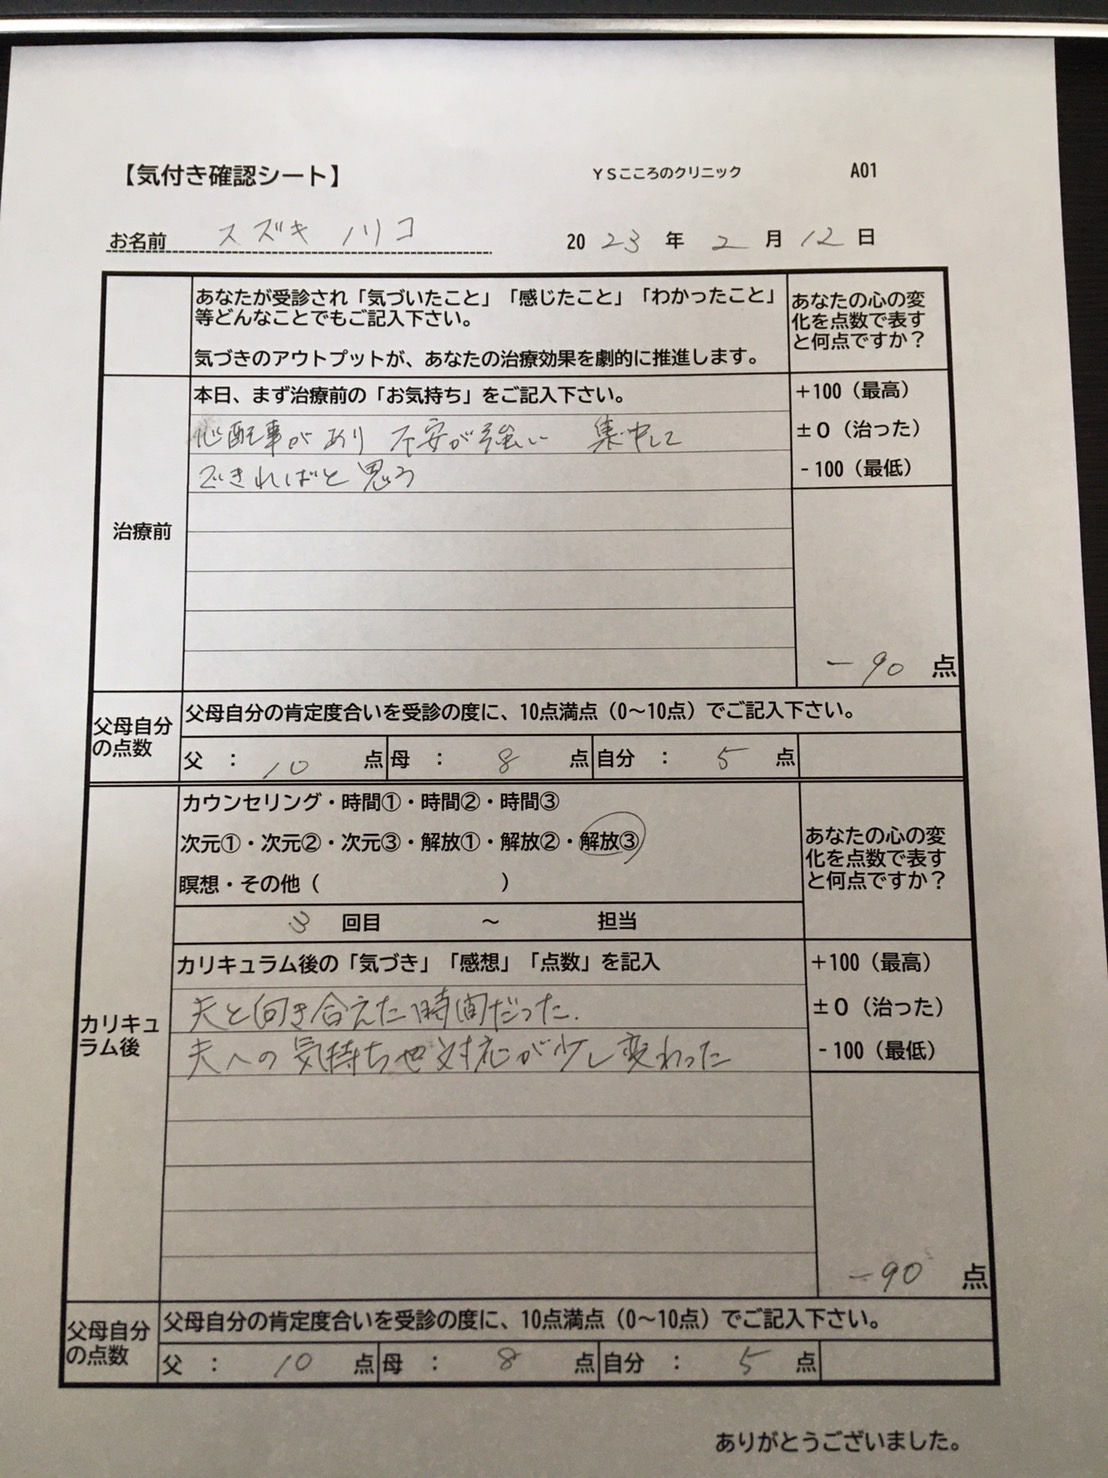 【気付き確認シート】 YSこころのクリニック A01
お名前 スズキ ノリコ 2023年2月12日
あなたが受診され「気づいたこと」「感じたこと」「わかったこと」
等どんなことでもご記入下さい。
気づきのアウトプットが、あなたの治療効果を劇的に推進します。
あなたの心の変
化を点数で表す
と何点ですか？
治療前
本日、まず治療前の「お気持ち」をご記入下さい。
心配事があり 不安が強い 集中して
できればと思う
+100（最高）
±0（治った）
-100（最低）
-90 点
父母自分
の点数
父母自分の肯定度合いを受診の度に、10点満点（0～10点）でご記入下さい。
父 ： 10 点 母 ： 8 点 自分 ： 5 点
カリキュ
ラム後
カウンセリング・時間①・時間②・時間③
次元①・次元②・次元③・解放①・解放②・解放③
瞑想・その他（ ）
3 回目 ～ 担当
あなたの心の変
化を点数で表す
と何点ですか？
カリキュラム後の「気づき」「感想」「点数」を記入
夫と向き合えた時間だった.
夫への気持ちや対応が少し変わった
+100（最高）
±0（治った）
-100（最低）
-90 点
父母自分
の点数
父母自分の肯定度合いを受診の度に、10点満点（0～10点）でご記入下さい。
父 ： 10 点 母 ： 8 点 自分 ： 5 点
ありがとうございました。